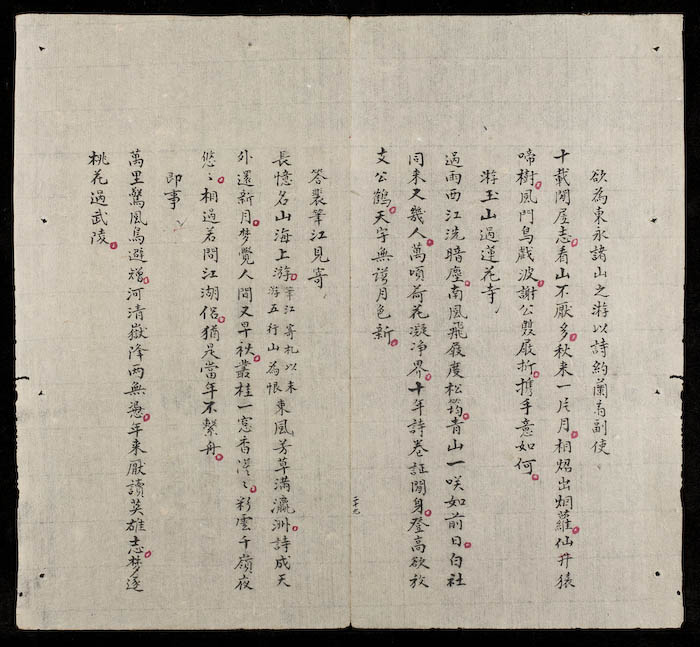 欲為東永諸山之游以詩約蘭副使
十載閉屋志看山不厭多秋來一片月相炤出烟蘿仙井猿
啼樹風門鳥戲波謝公雙屐折攜手意如何
游玉山過蓮花寺
過雨西江洗暗塵南風飛屐度松筠青山一咲如前日白社
同来又幾人萬頃荷花凝净界十年詩卷証閒身登高欲放
支公鶴天宇無月色新
二十九
答裴筆江見寄
長憶名山海上游筆江寄札以未游五行山為恨東風芳草滿瀛洲詩成天
外還新月梦覺人間又早秋叢桂一窓香漠〻彩雲千嶺夜
悠〻相過若問江湖侶猶是當年不繫舟
即事
萬里驚風鳥避矰河清嶽降兩無憑年来厭讀英雄志梦逐
桃花過武陵